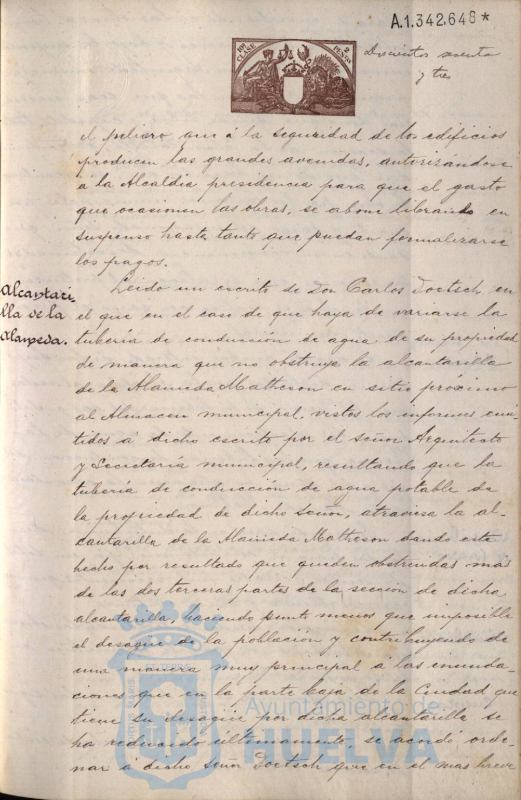 A.1.342.648*
10ª CLASE
2 PESETAS
Doscientos sesenta
y tres
el peligro que á la seguridad de los edificios
producen las grandes avenidas, autorizándose
á la Alcaldia presidencia para que el gasto
que ocasionen las obras, se abone librando en
suspenso hasta tanto que puedan formalizarse
los pagos.
Alcantari
lla de la
Alameda.
Leido un escrito de Don Carlos Doetsch, en
el que en el caso de que haya de variarse la
tubería de conducción de agua de su propiedad
de manera que no obstruya la alcantarilla
de la Alameda Matheson en sitio próximo
al Almacen municipal, vistos los informes emi-
tidos á dicho escrito por el señor Arquitecto
y Secretaría municipal, resultando que la
tubería de conducción de agua potable de
la propiedad de dicho señor, atraviesa la al-
cantarilla de la Alameda Matheson dando este
hecho por resultado que queden obstruidas más
de las dos terceras partes de la sección de dicha
alcantarilla, haciendo punto menos que imposible
el desagüe de la población y contribuyendo de
una manera muy principal á las inunda-
ciones que en la parte baja de la Ciudad que
tiene su desagüe por dicha alcantarilla se
ha reducido ultimamente, se acordó orde-
nar á dicho Señor Doetsch que en el mas breve
Ayuntamiento de
HUELVA